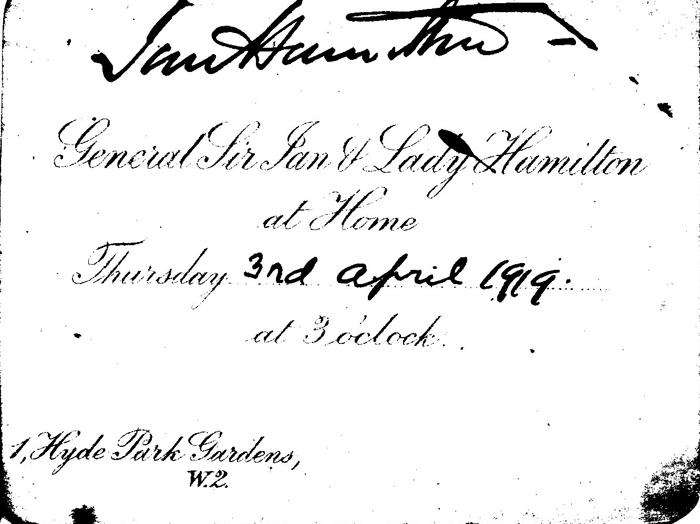 Ian Hamilton
General Sir Ian & Lady Hamilton
at Home
Thursday 3rd april 1919.
at 3 o'clock.
1, Hyde Park Gardens,
W.2.